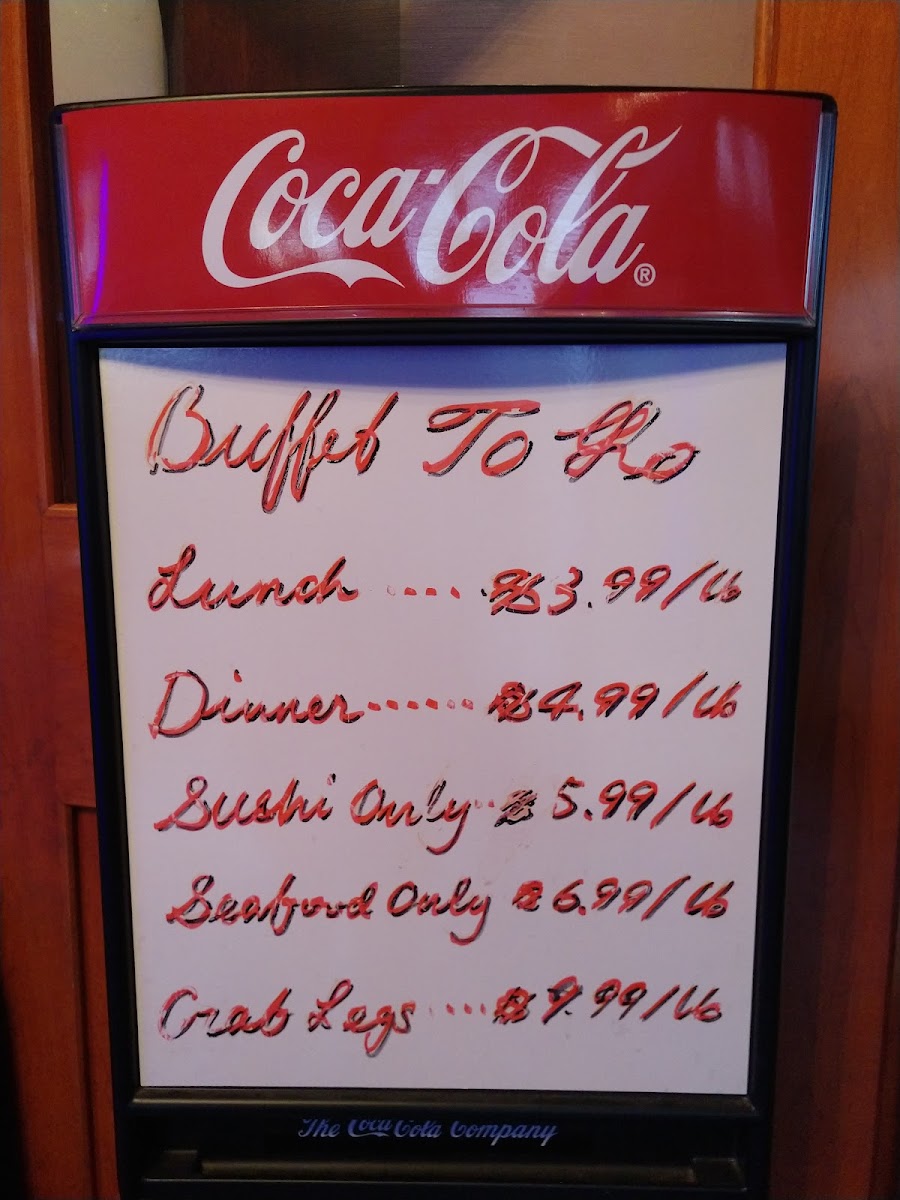 Coca-Cola®
Buffet To Go
Lunch ..... $3.99/lb
Dinner ...... $4.99/lb
Sushi Only .. $5.99/lb
Seafood Only $6.99/lb
Crab Legs .... $9.99/lb
The Coca-Cola Company